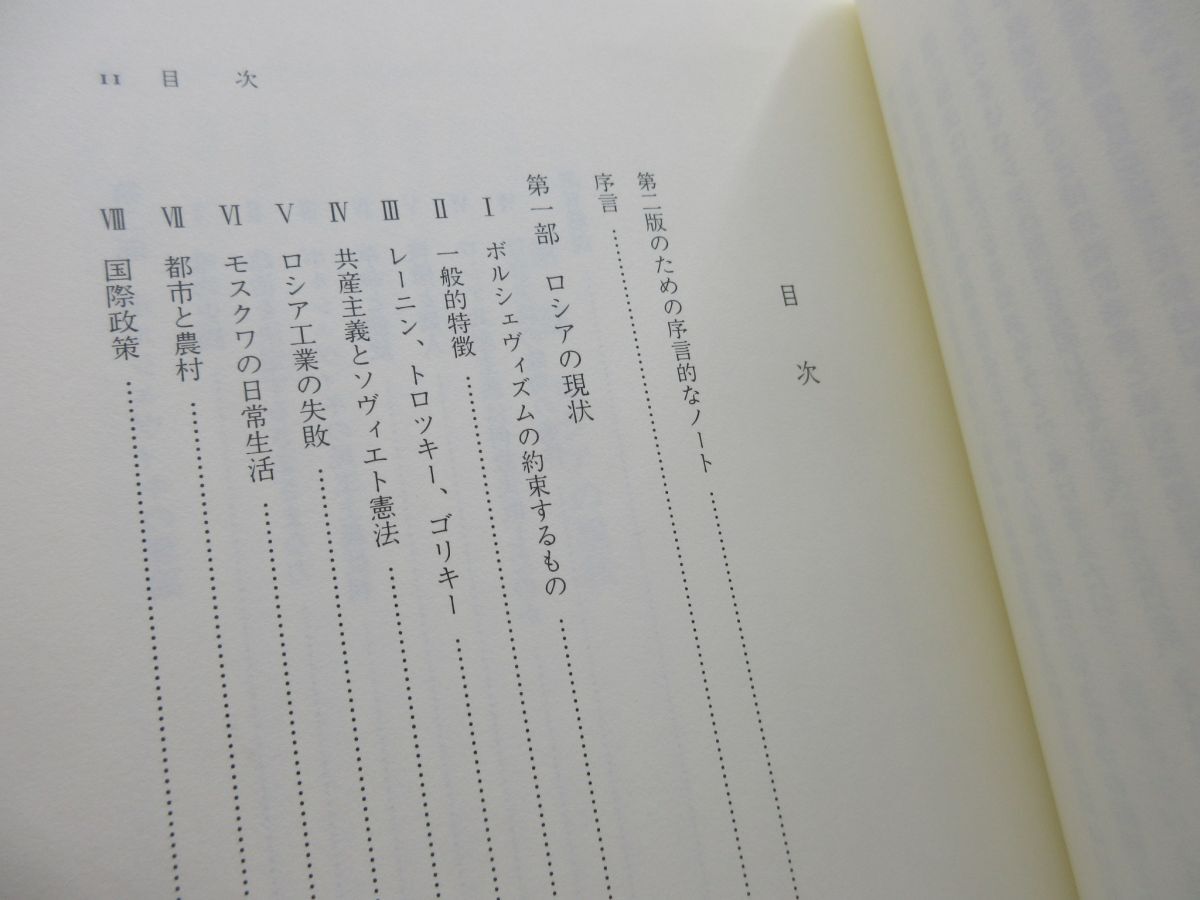 11 目次
目次
第二版のための序言的なノート
序言
第一部 ロシアの現状
Ⅰ ボルシェヴィズムの約束するもの
Ⅱ 一般的特徴
Ⅲ レーニン、トロツキー、ゴリキー
Ⅳ 共産主義とソヴィエト憲法
Ⅴ ロシア工業の失敗
Ⅵ モスクワの日常生活
Ⅶ 都市と農村
Ⅷ 国際政策